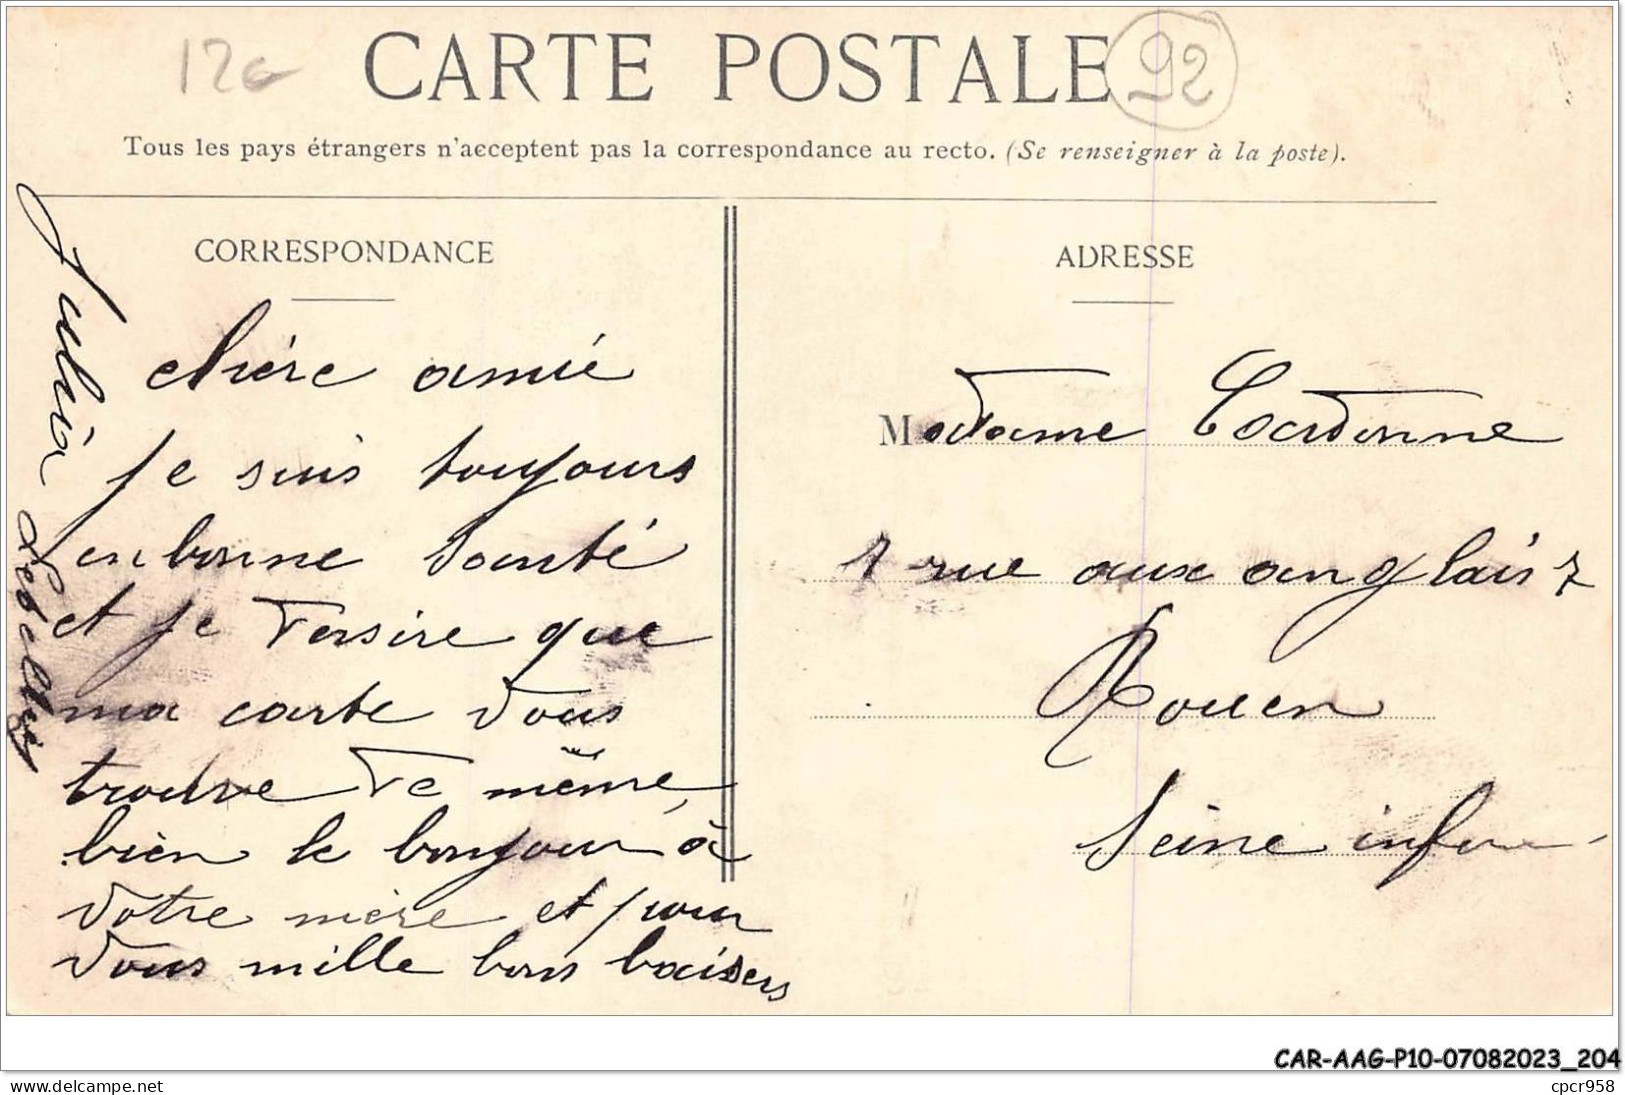 12e
CARTE POSTALE
92
Tous les pays étrangers n'acceptent pas la correspondance au recto. (Se renseigner à la poste).
CORRESPONDANCE
chère amie
je suis toujours
en bonne santé
et je désire que
ma carte vous
trouve de même,
bien le bonjour à
votre mère et pour
vous mille bons baisers
Julia
ADRESSE
Madame
1 rue aux anglais 7
Rouen
Seine infre
CAR-AAG-P10-07082023_204
delcampe.net
cpcr958